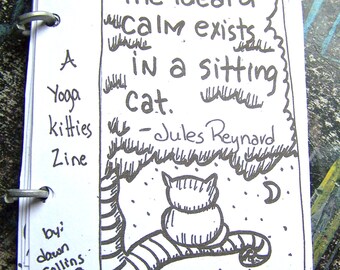 The ideal of
calm exists
in a sitting
cat.
-Jules Reynard
A
Yoga
kitties
Zine
by:
dawn
Collins